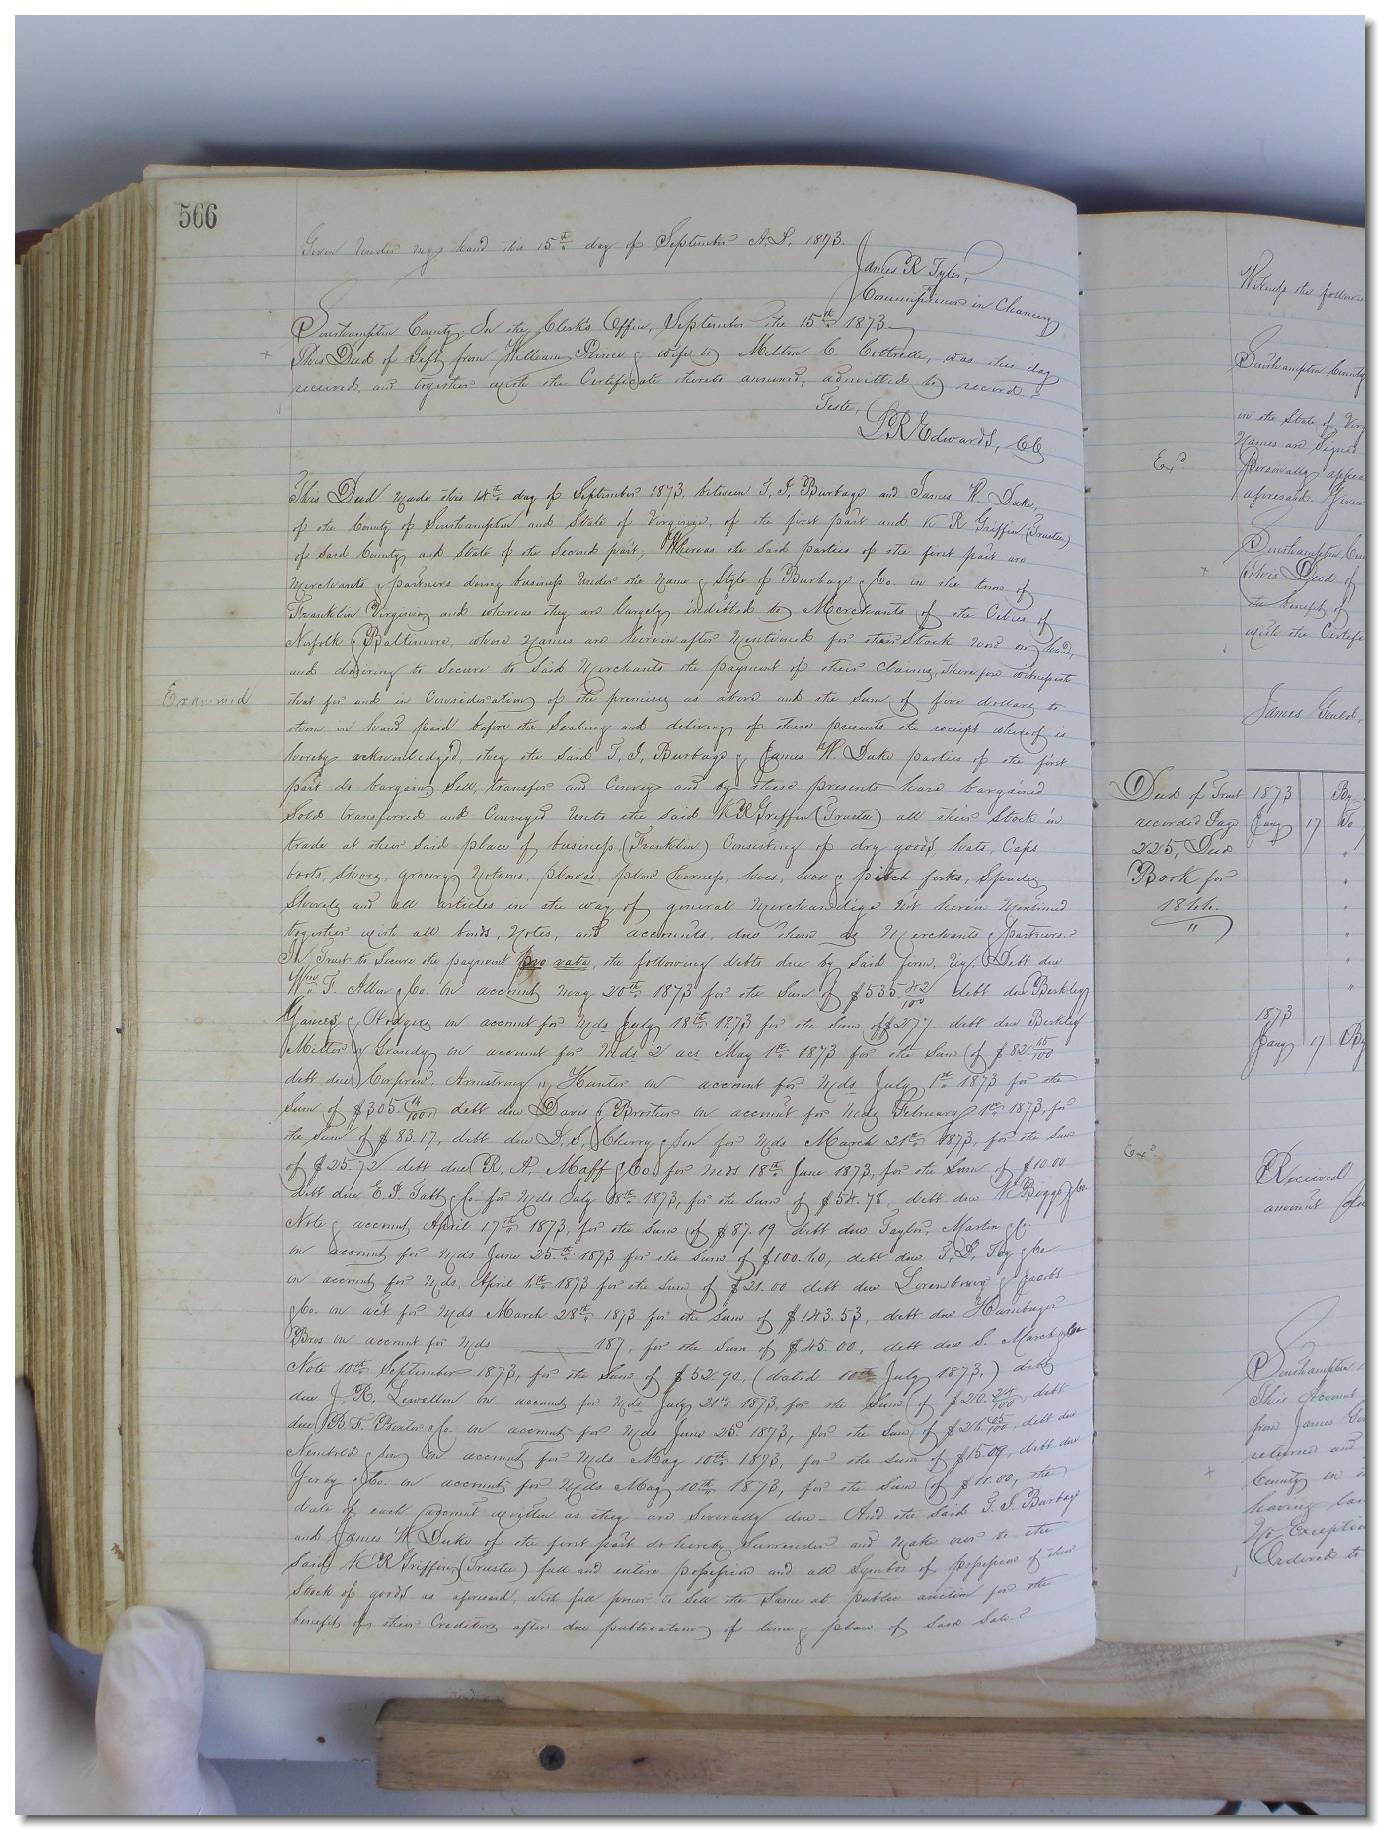 566
Given under my hand this 15th day of September A.D. 1873.
James R Tyler,
Commissioner in Chancery
Southampton County: In the Clerk's Office, September the 15th 1873
This Deed of Gift from William Prince & wife to Milton C. was this day
received, and together with the Certificate thereto annexed, admitted to record.
Teste,
L R Edwards, CC
This Deed made this 14th day of September 1873, between T. J. Burbage and James W. Duke,
of the County of Southampton and State of Virginia, of the first part and K R Griffin (Trustee)
of said County and State of the second part, Whereas the said parties of the first part are
Merchants & partners doing business under the name & style of Burbage & Co. in the town of
Franklin Virginia and whereas they are largely indebted to Merchants of the Cities of
Norfolk & Baltimore, whose names are hereinafter mentioned for their Stock now on hand,
and desiring to secure to said Merchants the payment of their claims, Therefore witnesseth
Examined
that for and in consideration of the premises as above and the sum of five dollars to
them in hand paid before the sealing and delivery of these presents the receipt whereof is
hereby acknowledged, they the said T. J. Burbage & James W. Duke parties of the first
part do bargain, sell, transfer and convey and by these presents have bargained
sold transferred and conveyed unto the said K R Griffin (Trustee) all their Stock in
trade at their said place of business (Franklin) consisting of dry goods, hats, caps
boots, shoes, grocery notions, plows, plow harness, hoes, & pitch forks, spades,
shovels and all articles in the way of general merchandize not herein mentioned
together with all bonds, notes, and accounts, due them as Merchants & partners.
In Trust to secure the payment pro rata, the following debts due by said firm, viz. Debt due
Wm F. Allen & Co. on account May 20th 1873 for the sum of $535 42/100 debt due Berkley
& Hodges on account for Mds July 18th 1873 for the sum of $277. debt due Berkley
Millar & Grandy on account for Mds 2 acs May 1st 1873 for the sum of $82 45/100
debt due Corprew, Armstrong & Hunter on account for Mds July 1st 1873 for the
sum of $305. debt due Davis & Brother on account for Mds February 1st 1873, for
the sum of $83.17, debt due D. S. Cherry & Son for Mds March 21st 1873, for the sum
of $25.72 debt due R. A. & Co. for Mds 18th June 1873, for the sum of $10.00
debt due E. J. & Co for Mds July 8th 1873, for the sum of $54.78, debt due W Boggs & Co
Note & account, April 17th 1873, for the sum of $87.19 debt due Taylor, Martin & Co
on account for Mds June 25th 1873 for the sum of $100.40, debt due & Co
on account for Mds, April 1873 for the sum of $21.00 debt due & Jacobs
& Co. on act for Mds March 28th 1873 for the sum of $143.53, debt due
Bros on account for Mds ______ 187 , for the sum of $45.00, debt due S. March & Co
Note 10th September 1873, for the sum of $52.90, (dated 10th July 1873,) debt
due J. R. Lewellen on account for Mds July 21st 1873, for the sum of $20. debt
due & Co. on account for Mds June 1873, for the sum of debt due
& Son on account for Mds May 10th 1873, for the sum of $15.09, debt due
& Co. on account for Mds May 10th 1873, for the sum of $11.00, the
date of each account written as they are severally due - And the said T. J. Burbage
and James W Duke of the first part do hereby surrender and make over to the
said K R Griffin (Trustee) full and entire possession and all symbols of possession of their
stock of goods as aforesaid, with full power to sell the same at public auction for the
benefit of their Creditors after due publication of time & place of said sale.
Witness the
Southampton County
in the State of
Names are Signed
Exd
Personally
aforesaid. Given
Southampton
This Deed of
the benefit of
with the
James
Deed of Trust 1873
recorded Page Jany 17 To
225, Deed
Book for
1873
Jany 17 By
Exd
Received
amount
Southampton
This Account
from James
returned and
County on
having
No Exception
Ordered to